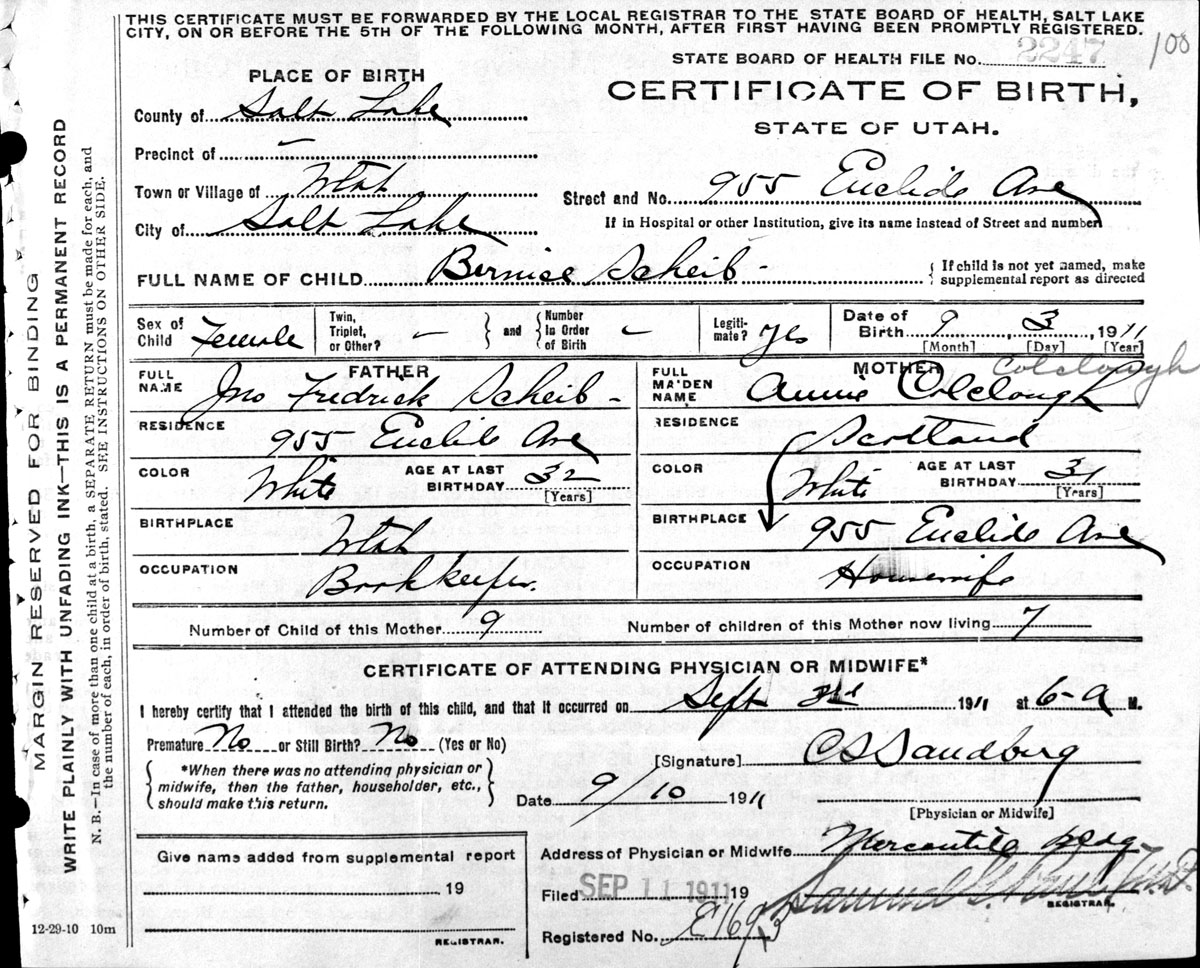 THIS CERTIFICATE MUST BE FORWARDED BY THE LOCAL REGISTRAR TO THE STATE BOARD OF HEALTH, SALT LAKE
CITY, ON OR BEFORE THE 5TH OF THE FOLLOWING MONTH, AFTER FIRST HAVING BEEN PROMPTLY REGISTERED.
100
STATE BOARD OF HEALTH FILE No. 2247
CERTIFICATE OF BIRTH,
STATE OF UTAH.
PLACE OF BIRTH
County of Salt Lake
Precinct of —
Town or Village of Utah
City of Salt Lake
Street and No. 955 Euclid Ave
If in Hospital or other Institution, give its name instead of Street and number
FULL NAME OF CHILD Bernice Scheib -
{ If child is not yet named, make
supplemental report as directed
Sex of Child Female
Twin, Triplet, or Other? — } and { Number In Order of Birth —
Legitimate? yes
Date of Birth 9 3 1911
[Month] [Day] [Year]
FATHER
FULL NAME Jno Fredrick Scheib -
RESIDENCE 955 Euclid Ave
COLOR White AGE AT LAST BIRTHDAY 32
[Years]
BIRTHPLACE Utah
OCCUPATION Bookkeeper.
MOTHER
Colclough
FULL MAIDEN NAME Annie Colclough
RESIDENCE Scotland
COLOR White AGE AT LAST BIRTHDAY 31
[Years]
BIRTHPLACE 955 Euclid Ave
OCCUPATION Housewife
Number of Child of this Mother 9 Number of children of this Mother now living 7
CERTIFICATE OF ATTENDING PHYSICIAN OR MIDWIFE*
I hereby certify that I attended the birth of this child, and that it occurred on Sept 3rd 1911 at 6-a M.
Premature No or Still Birth? No (Yes or No)
{ *When there was no attending physician or
midwife, then the father, householder, etc.,
should make this return. }
[Signature] C S Sandberg
Date 9/10 1911
[Physician or Midwife]
Address of Physician or Midwife Mercantile Bldg
Give name added from supplemental report
19
REGISTRAR.
Filed SEP 11 1911 19
REGISTRAR.
Registered No. E1693
12-29-10 10m
MARGIN RESERVED FOR BINDING
WRITE PLAINLY WITH UNFADING INK—THIS IS A PERMANENT RECORD
N. B.—In case of more than one child at a birth, a SEPARATE RETURN must be made for each, and
the number of each, in order of birth, stated. SEE INSTRUCTIONS ON OTHER SIDE.